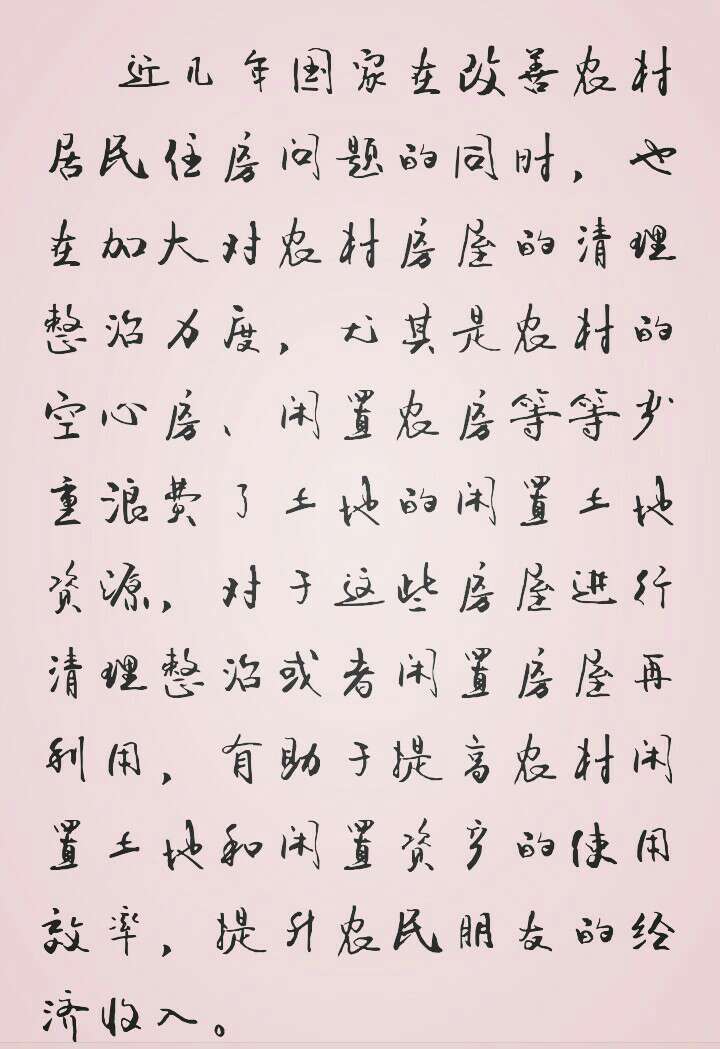 近几年国家在改善农村
居民住房问题的同时，也
在加大对农村房屋的清理
整治力度，尤其是农村的
空心房、闲置农房等等严
重浪费了土地的闲置土地
资源，对于这些房屋进行
清理整治或者闲置房屋再
利用，有助于提高农村闲
置土地和闲置资产的使用
效率，提升农民朋友的经
济收入。